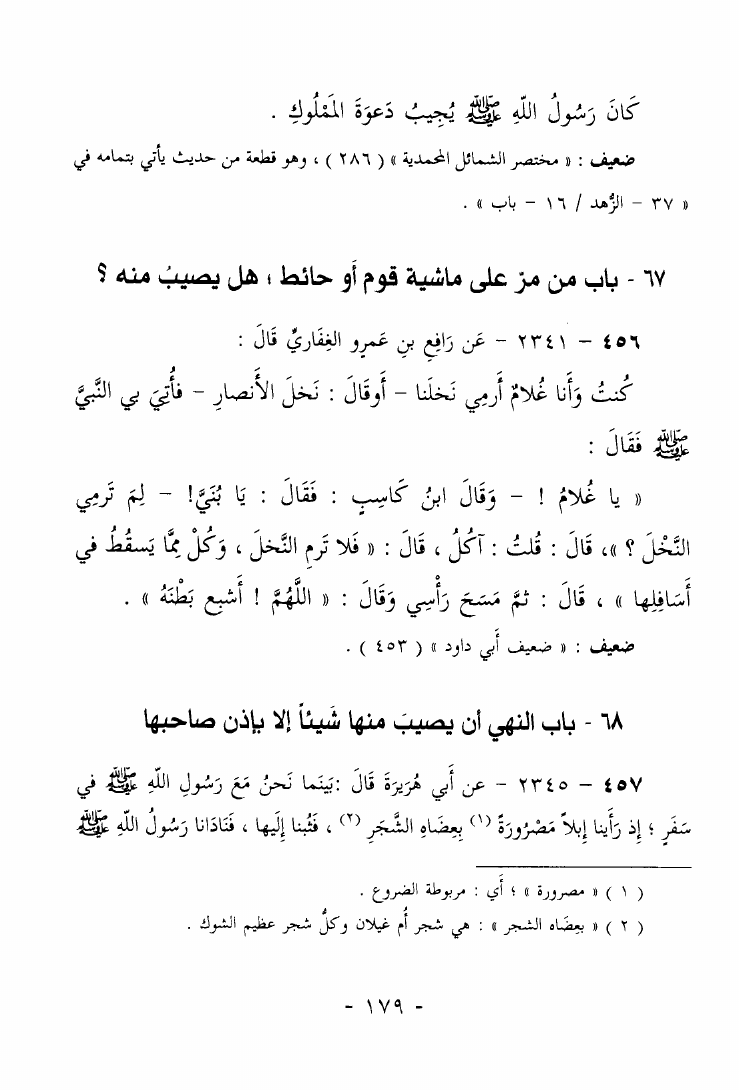 كَانَ رَسُولُ اللّهِ ﷺ يُجِيبُ دَعوَةَ المَمْلُوكِ .
ضعيف : « مختصر الشمائل المحمدية » ( ٢٨٦ ) ، وهو قطعة من حديث يأتي بتمامه في
« ٣٧ - الزُّهد / ١٦ - باب » .
٦٧ - باب من مرّ على ماشية قوم أو حائط ؛ هل يصيبُ منه ؟
٤٥٦ - ٢٣٤١ - عَن رَافِعِ بنِ عَمرٍو الغِفَاريِّ قَالَ :
كُنتُ وَأَنا غُلامٌ أَرمِي نَخلَنا - أَوقَالَ : نَخلَ الأَنصارِ - فأُتِيَ بي النَّبيَّ
ﷺ فَقَالَ :
« يا غُلامُ ! - وَقَالَ ابنُ كَاسِبٍ : فَقَالَ : يَا بُنَيَّ! - لِمَ تَرمِي
النَّخْلَ ؟ »، قَالَ : قُلتُ : آكُلُ ، قَالَ : « فَلا تَرمِ النَّخلَ ، وَكُلْ مِمَّا يَسقُطُ في
أَسَافِلِها » ، قَالَ : ثمَّ مَسَحَ رَأْسِي وَقَالَ : « اللَّهُمَّ ! أَشبِع بَطْنَهُ » .
ضعيف : « ضعيف أَبي داود » ( ٤٥٣ ) .
٦٨ - باب النهي أن يصيبَ منها شَيئاً إلا بإذن صاحبها
٤٥٧ - ٢٣٤٥ - عن أَبي هُرَيرَةَ قَالَ :بَينَما نَحنُ مَعَ رَسُولِ اللّهِ ﷺ في
سَفَرٍ ؛ إِذ رَأَينا إِبلاً مَصْرُورَةً (١) بِعِضَاهِ الشَّجَرِ (٢) ، فَثُبنا إِلَيها ، فَنَادَانا رَسُولُ اللّهِ ﷺ
( ١ ) « مصرورة » ؛ أَي : مربوطة الضروع .
( ٢ ) « بعِضَاه الشجر » : هي شجر أُم غيلان وكلُّ شجر عظيم الشوك .
- ١٧٩ -